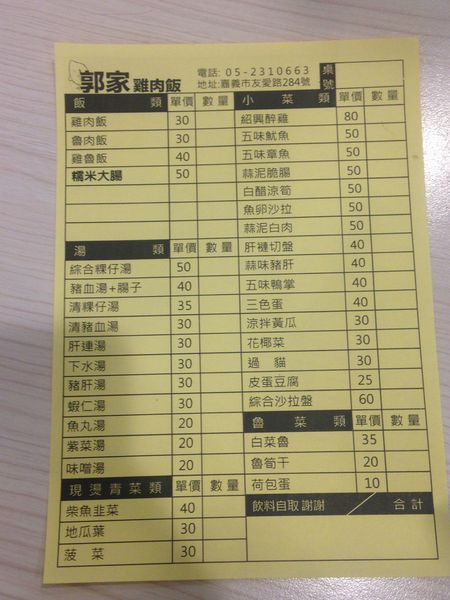 郭家雞肉飯
電話: 05-2310663
地址:嘉義市友愛路284號
桌號
飯類 單價 數量
雞肉飯 30
魯肉飯 30
雞魯飯 40
糯米大腸 50
湯類 單價 數量
綜合粿仔湯 50
豬血湯+腸子 40
清粿仔湯 35
清豬血湯 30
肝連湯 30
下水湯 30
豬肝湯 30
蝦仁湯 30
魚丸湯 20
紫菜湯 20
味噌湯 20
現燙青菜類 單價 數量
柴魚韭菜 40
地瓜葉 30
菠菜 30
小菜類 單價 數量
紹興醉雞 80
五味魷魚 50
五味章魚 50
蒜泥脆腸 50
白醋涼筍 50
魚卵沙拉 50
蒜泥白肉 50
肝褳切盤 40
蒜味豬肝 40
五味鴨掌 40
三色蛋 40
涼拌黃瓜 30
花椰菜 30
過貓 30
皮蛋豆腐 25
綜合沙拉盤 60
魯菜類 單價 數量
白菜魯 35
魯筍干 20
荷包蛋 10
飲料自取 謝謝 / 合計